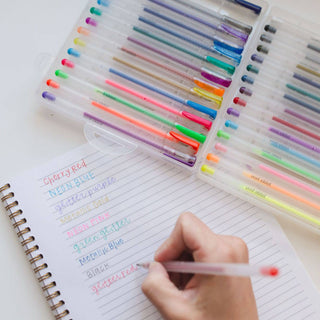 Cherry Red
NEON BLUE
glitter purple
metallic gold
neon pink
green glitter
Metallic Blue
Black
glitter red